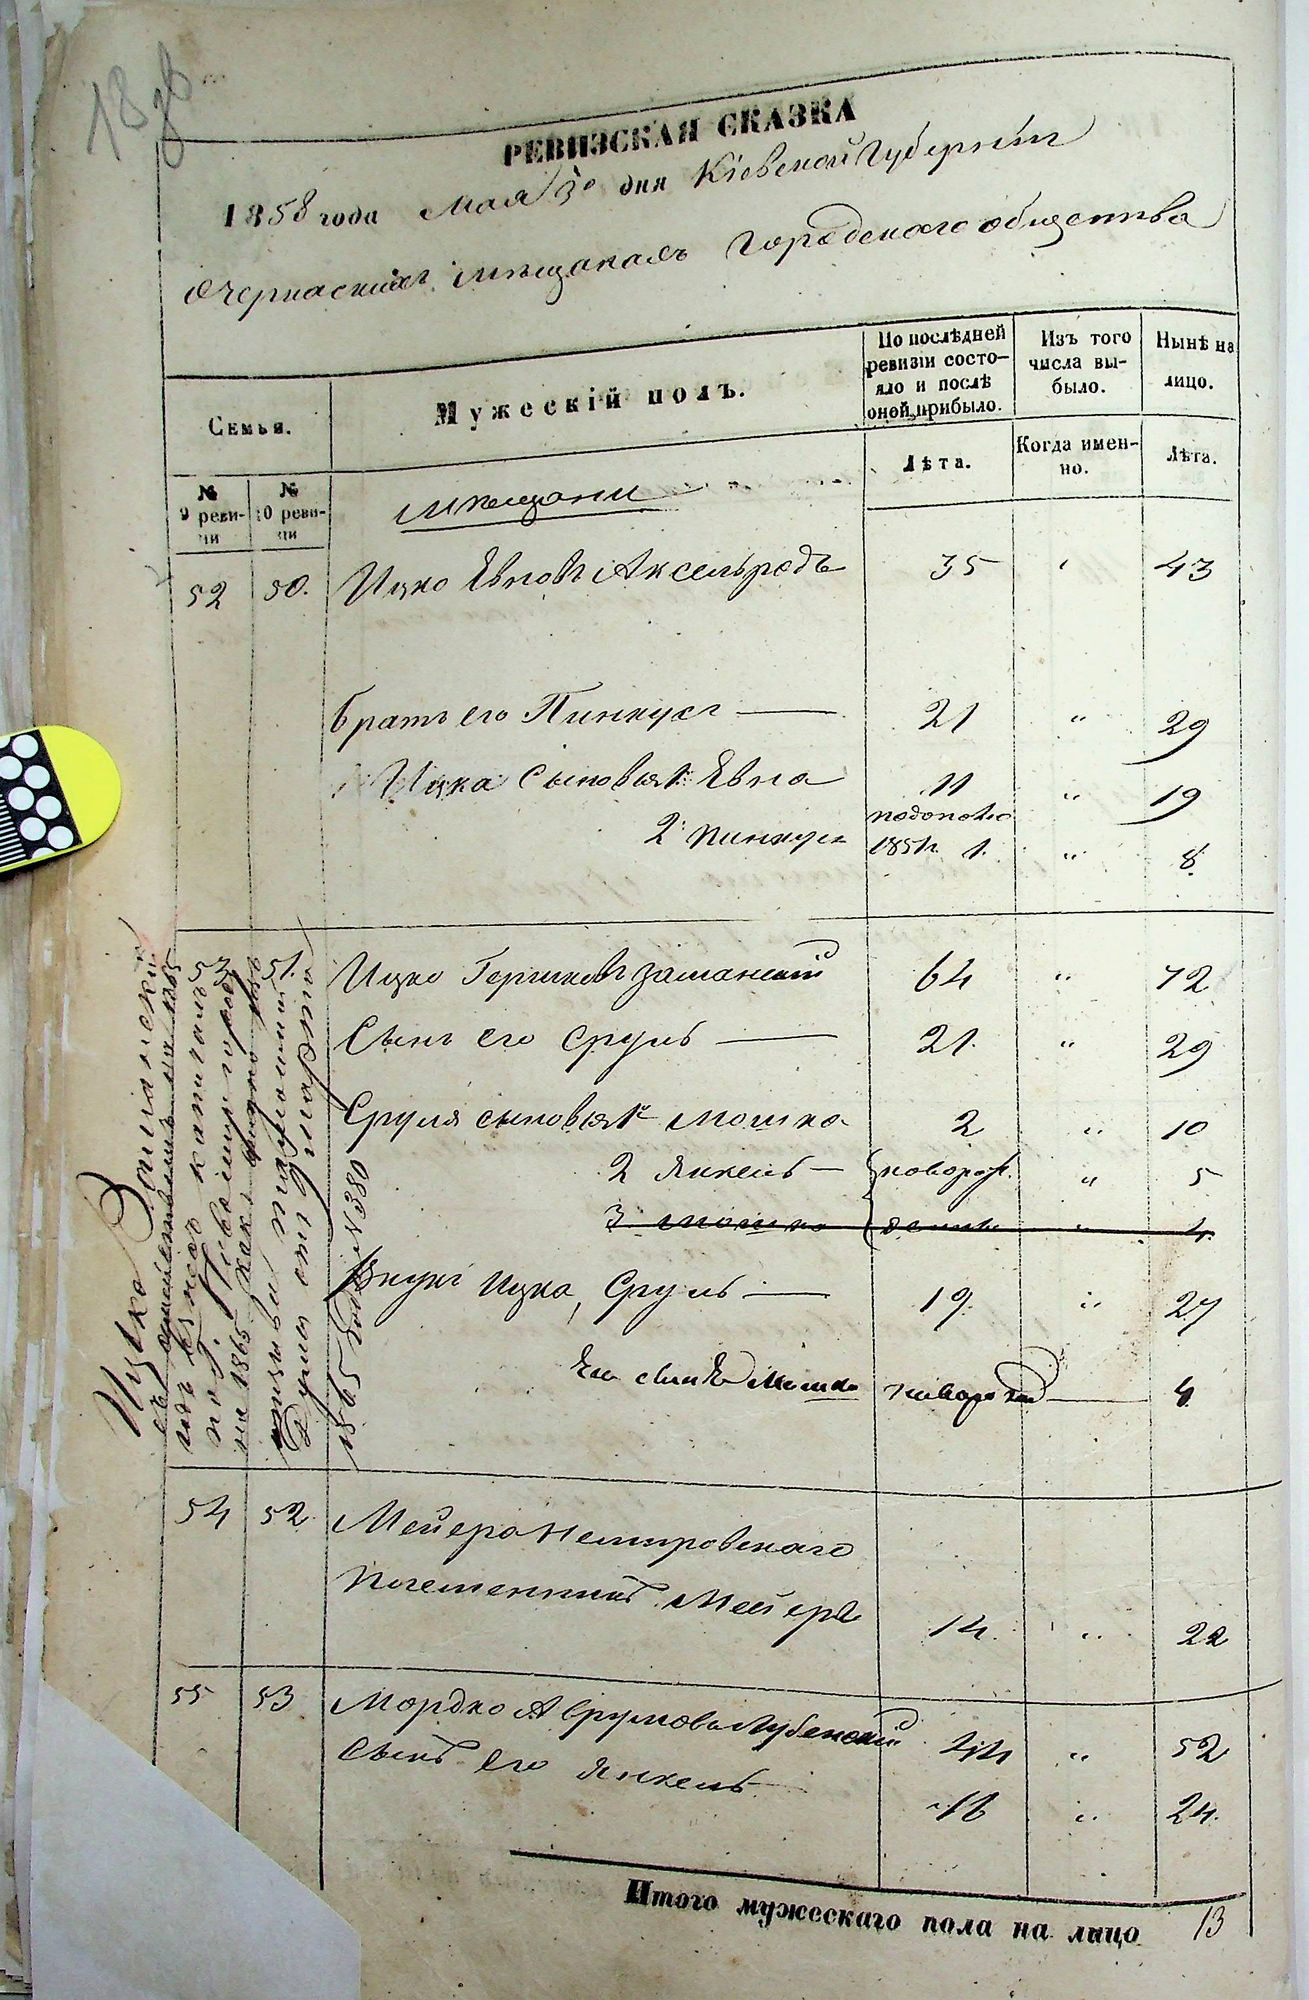 РЕВИЗСКАЯ СКАЗКА
1858 года Мая 3го дня Кіевской Губерніи
О Черкаскихъ мѣщанахъ городскаго общества
Семья.
Мужескій полъ.
По послѣдней ревизіи состояло и послѣ оной прибыло.
Изъ того числа выбыло.
Нынѣ на лицо.
№ 9 ревизіи
№ 10 ревизіи
Лѣта.
Когда именно.
Лѣта.
Мѣщани
52 50. Ицко Евновъ Аксельродъ 35 " 43
Братъ его Пинкусъ — 21 " 29
Ицка сыновья 1й Евна 11 " 19
2й Пинкусъ 1851 г. 1. " 8.
53 51. Ицко Гершковъ Заманскій 64 " 72
Сынъ его Сруль — 21. " 29
Сруля сыновья 1й Мошко 2 " 10
2 Янкель — новорож " 5
3 Мошко денные " 4.
Внукъ Ицка, Сруль — 19. " 27
Его сынъ Мошко новорожд — 4
54 52 Мейера Немировскаго
племенникъ Мейеръ 14. " 22
55 53 Мордко Аврумовъ Лубенскій 44 " 52
Сынъ его Янкель 16 " 24.
Итого мужескаго пола на лицо 13
Ицко Заманскій
на 1865
1865 года N 380